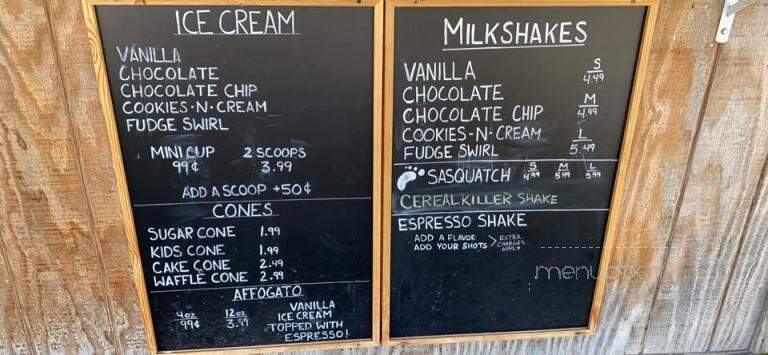 ICE CREAM
VANILLA
CHOCOLATE
CHOCOLATE CHIP
COOKIES-N-CREAM
FUDGE SWIRL
MINI CUP 2 SCOOPS
99¢ 3.99
ADD A SCOOP +50¢
CONES
SUGAR CONE 1.99
KIDS CONE 1.99
CAKE CONE 2.49
WAFFLE CONE 2.99
AFFOGATO
4oz 12oz
99¢ 3.99
VANILLA
ICE CREAM
TOPPED WITH
ESPRESSO!
MILKSHAKES
VANILLA
CHOCOLATE
CHOCOLATE CHIP
COOKIES-N-CREAM
FUDGE SWIRL
S
4.49
M
4.99
L
5.49
SASQUATCH
S M L
4.99 5.49 5.99
CEREAL KILLER SHAKE
ESPRESSO SHAKE
ADD A FLAVOR
ADD YOUR SHOTS
> EXTRA
CHARGES
APPLY